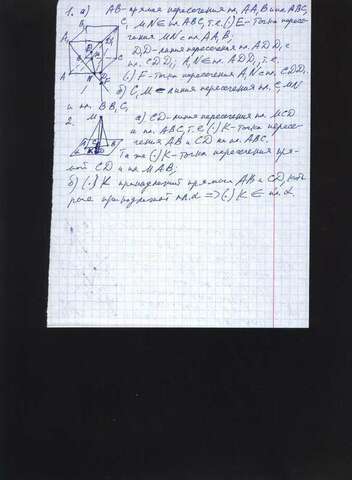 1. а) AB - прямая пересечения пл. AA₁B и пл. ABC,
MN ∈ пл. ABC, т.е. (·) E - точка пересе-
чения MN с пл. AA₁B;
D₁D - линия пересечения пл. ADD₁ с
пл. CDD₁; A₁N ∈ пл. ADD₁, т.е.
(·) F - точка пересечения A₁N с пл. CDD₁.
б) C₁M - линия пересечения пл. C₁MN
и пл. BB₁C₁
2. а) CD - линия пересечения пл. MCD
и пл. ABC, т.е. (·) K - точка пересе-
чения AB и CD на пл. ABC.
(·) K - точка пересечения пря-
мой CD и пл. MAB;
б) (·) K принадлежит прямым AB и CD,
принадлежат пл. α => (·) K ∈ пл. α